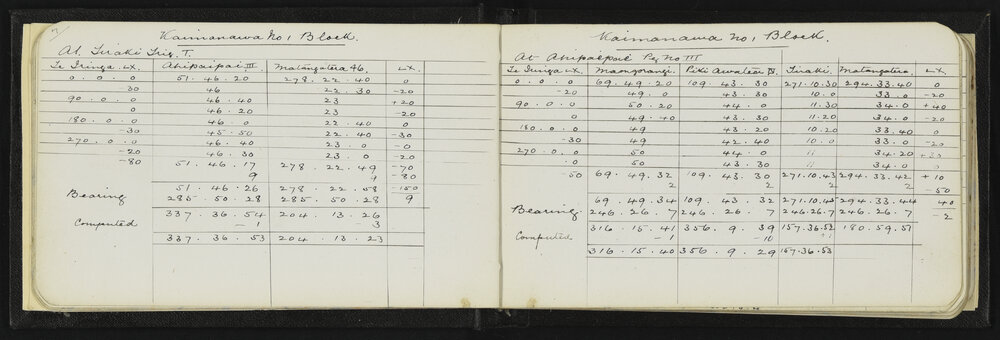 7
Kaimanawa No 1 Block.
At Tiraki Trig. T.
Te Iringa LX. Ahipaipai III. Matangatera 46. LX.
0 . 0 . 0 51 . 46 . 20 278 . 22 . 40 0
30 46 22 . 30 -20
90 . 0 . 0 46 . 40 23 +20
0 46 . 20 23 -20
180 . 0 . 0 46 . 0 22 . 40 0
-30 45 . 50 22 . 40 -30
270 . 0 . 0 46 . 40 23 . 0 -0
-20 46 . 30 23 . 0 -20
-80 51 . 46 . 17 278 . 22 . 49 -70
9 9 -80
51 . 46 . 26 278 . 22 . 58 -150
Bearing 285 . 50 . 28 285 . 50 . 28 9
337 . 36 . 54 204 . 13 . 26
Computed -1 3
337 . 36 . 53 204 . 13 . 23
Kaimanawa No 1 Block.
At Ahipaepae Peg No III
Te Iringa LX. Maungorangi. Piki Awatea IV. Tiraki. Matangatera. LX.
0 . 0 . 0 69 . 49 . 20 109 . 43 . 30 271 . 10 . 30 294 . 33 . 40 0
-20 49 . 0 43 . 30 10 . 0 33 . 0 -20
90 . 0 . 0 50 . 20 44 . 0 11 . 30 34 . 0 +40
0 49 . 40 43 . 30 11 . 20 34 . 0 -20
180 . 0 . 0 49 43 . 20 10 . 20 33 . 40 0
-30 49 42 . 40 10 . 0 33 . 0 -20
270 . 0 . 0 50 44 . 0 11 34 . 20 +30
0 50 43 . 30 11 34 . 0 -20
-50 69 . 49 . 32 109 . 43 . 30 271 . 10 . 43 294 . 33 . 42 +10
2 2 2 2 -50
69 . 49 . 34 109 . 43 . 32 271 . 10 . 45 294 . 33 . 44 40
Bearing 246 . 26 . 7 246 . 26 . 7 246 . 26 . 7 246 . 26 . 7 -2
316 . 15 . 41 356 . 9 . 39 157 . 36 . 52 180 . 59 . 51
Computed -1 -10
316 . 15 . 40 356 . 9 . 29 157 . 36 . 53